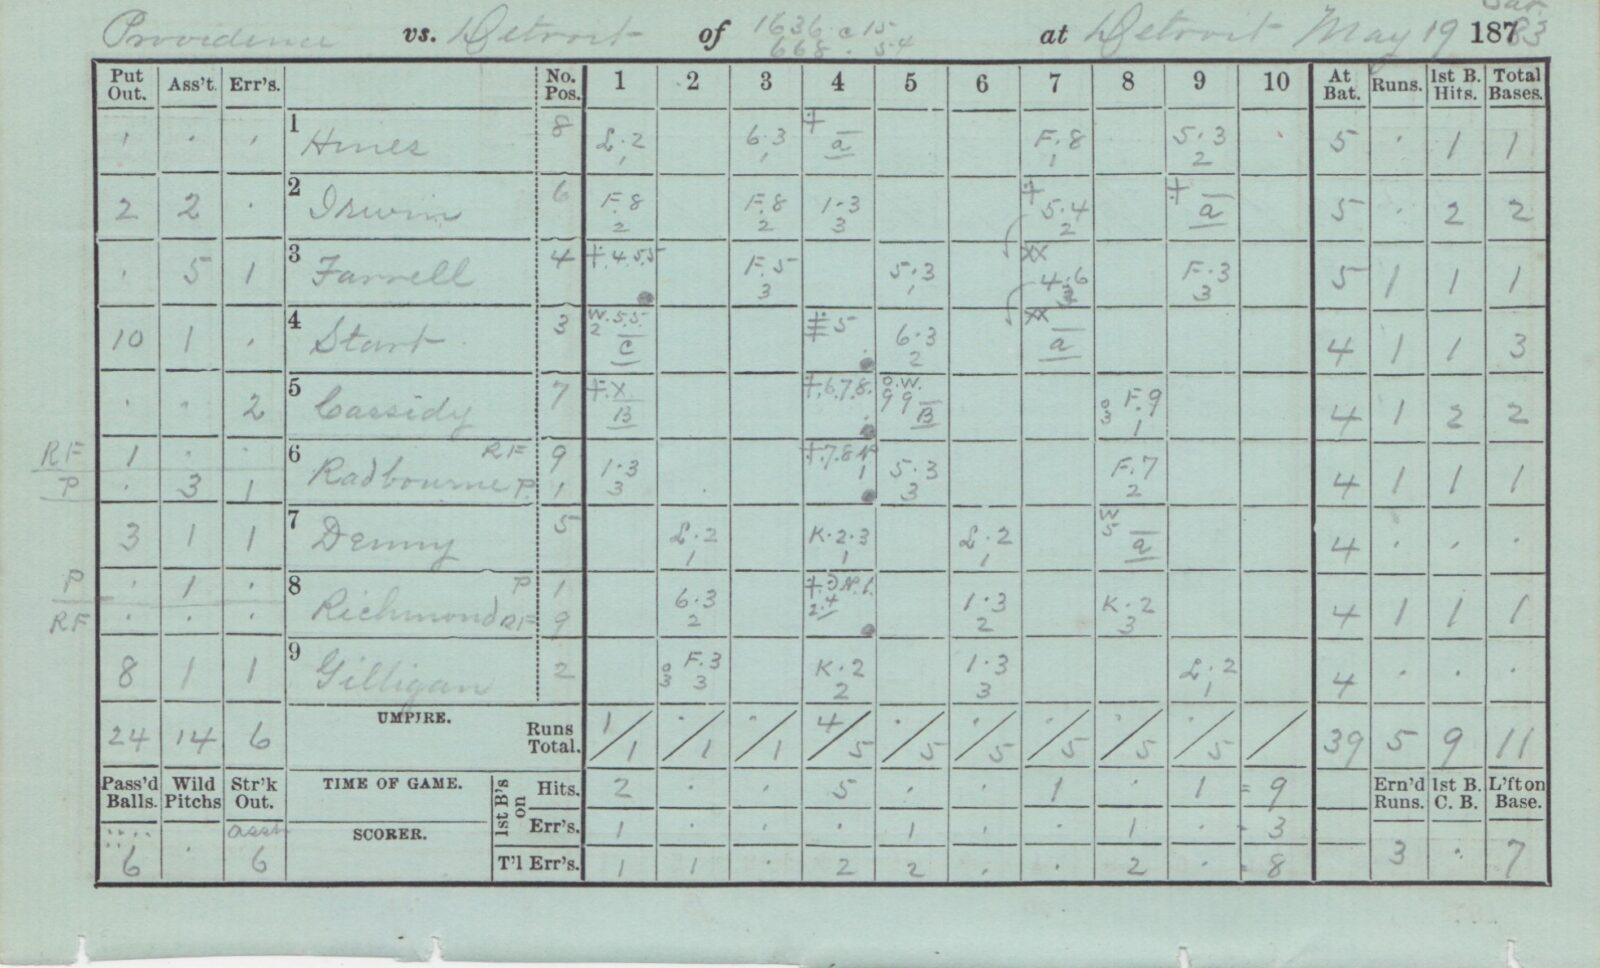 Providence vs. Detroit of 1636 c 15 668 . 54 at Detroit May 19 1883
Put Out. Ass't. Err's. No. Pos. 1 2 3 4 5 6 7 8 9 10 At Bat. Runs. 1st B. Hits. Total Bases.
1 . . 1 Hines 8 L.2 1 6.3 1 + a F.8 1 5.3 2 5 . 1 1
2 2 . 2 Irwin 6 F.8 2 F.8 2 1.3 3 + 5.4 2 + a 5 . 2 2
. 5 1 3 Farrell 4 +.4.5.5 F.5 3 5.3 1 XX 4.6 3 F.3 3 5 1 1 1
10 1 . 4 Start 3 W.5.5. 2 C 5 6.3 2 XX a 4 1 1 3
. . 2 5 Cassidy 7 +.X B +.6.7.8. O.W. 9 9 B 03 F.9 1 4 1 2 2
RF 1 . . 6 Radbourne RF 9 1.3 3 +.7.8 5.3 3 F.7 2 4 1 1 1
P . 3 1 P. 1
3 1 1 7 Denny 5 L.2 1 K.2.3 1 L.2 1 W 5 a 4 . . .
P . 1 . 8 Richmond P 1 6.3 2 1.3 2 K.2 3 4 1 1 1
RF . . . RF 9
8 1 1 9 Gilligan 2 03 F.3 3 K.2 2 1.3 3 L.2 1 4 . . .
24 14 6 UMPIRE. Runs Total. 1/1 ./1 ./1 4/5 ./5 ./5 ./5 ./5 ./5 / 39 5 9 11
Pass'd Balls. Wild Pitchs Str'k Out. TIME OF GAME. 1st B's on Hits. 2 . . 5 . . 1 . 1 = 9 Ern'd Runs. 1st B. C. B. L'ft on Base.
asst SCORER. Err's. 1 . . . 1 . . 1 . - 3
6 . 6 T'l Err's. 1 1 . 2 2 . . 2 . = 8 3 . 7